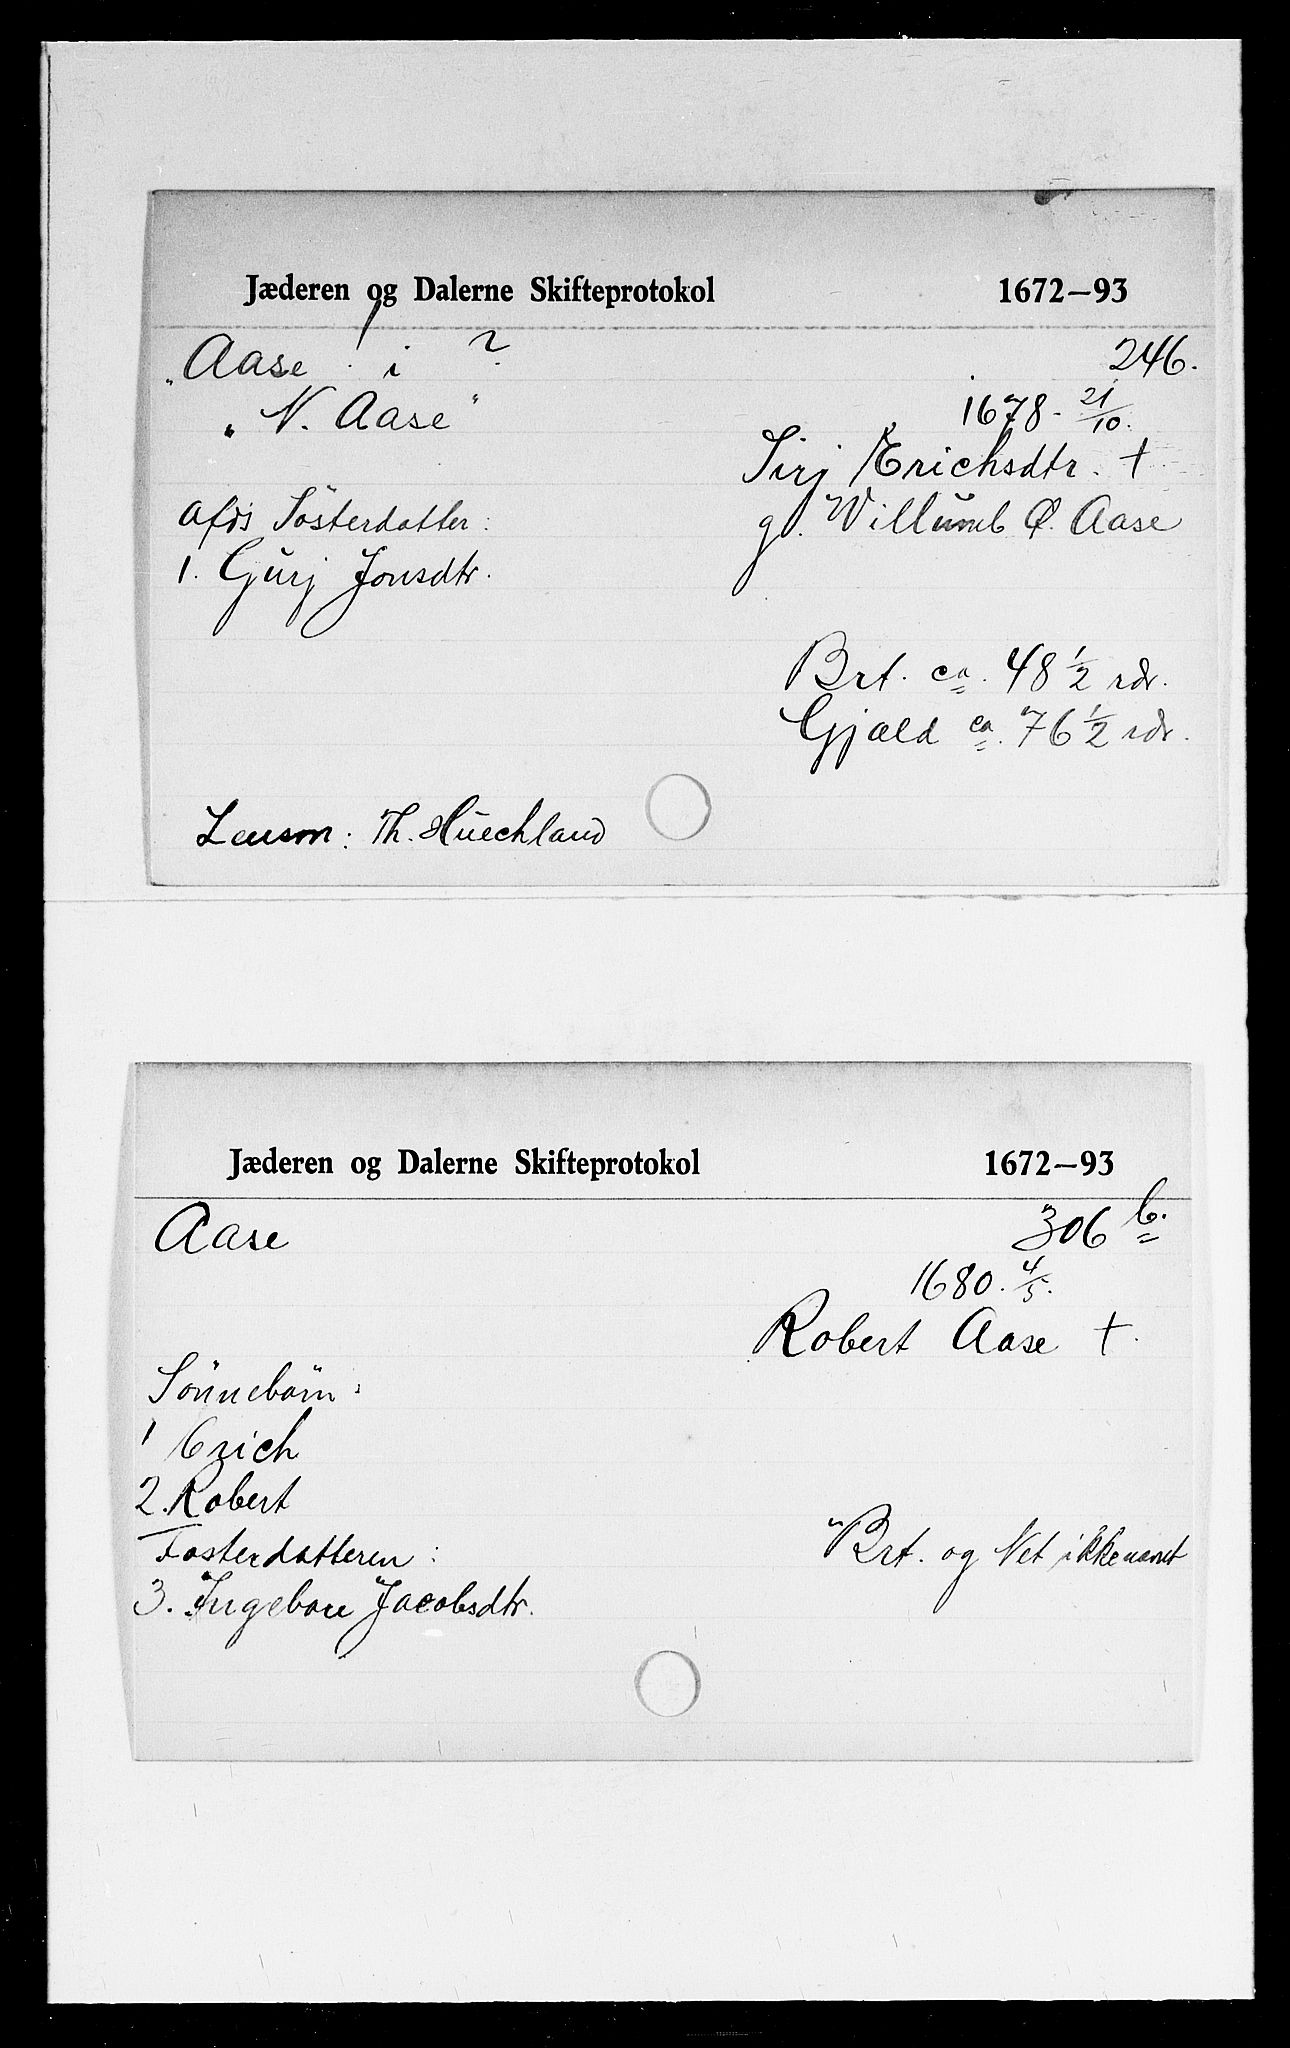 Jæderen og Dalerne Skifteprotokol 1672–93
Aase i ? 246.
"N. Aase" 1678. 21/10.
Sirj Erichsdtr. †
Afds Sösterdatter: g. Willumb Ø. Aase
1. Gurj Jonsdtr.
Brt. ca. 48 1/2 rdr.
Gjæld ca. 76 1/2 rdr.
Lensm: Th. Huechland
Jæderen og Dalerne Skifteprotokol 1672–93
Aase 306 b.
1680. 4/5.
Robert Aase †.
Sönnebörn:
1 Erich
2. Robert
Fosterdatteren: Brt. og Net ikke nævnt
3. Ingebore Jacobsdtr.